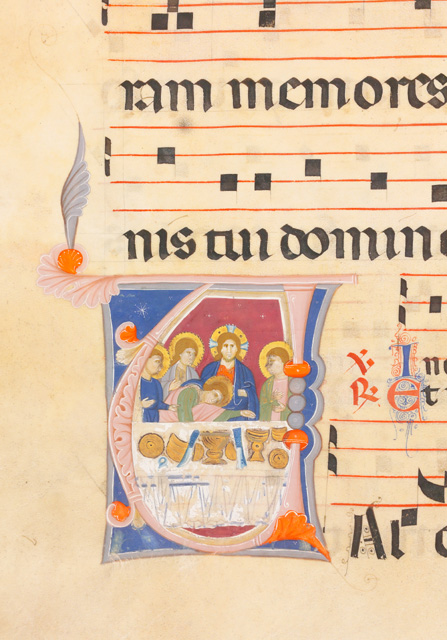 ram memores
nis tui domine
V.
R. Et